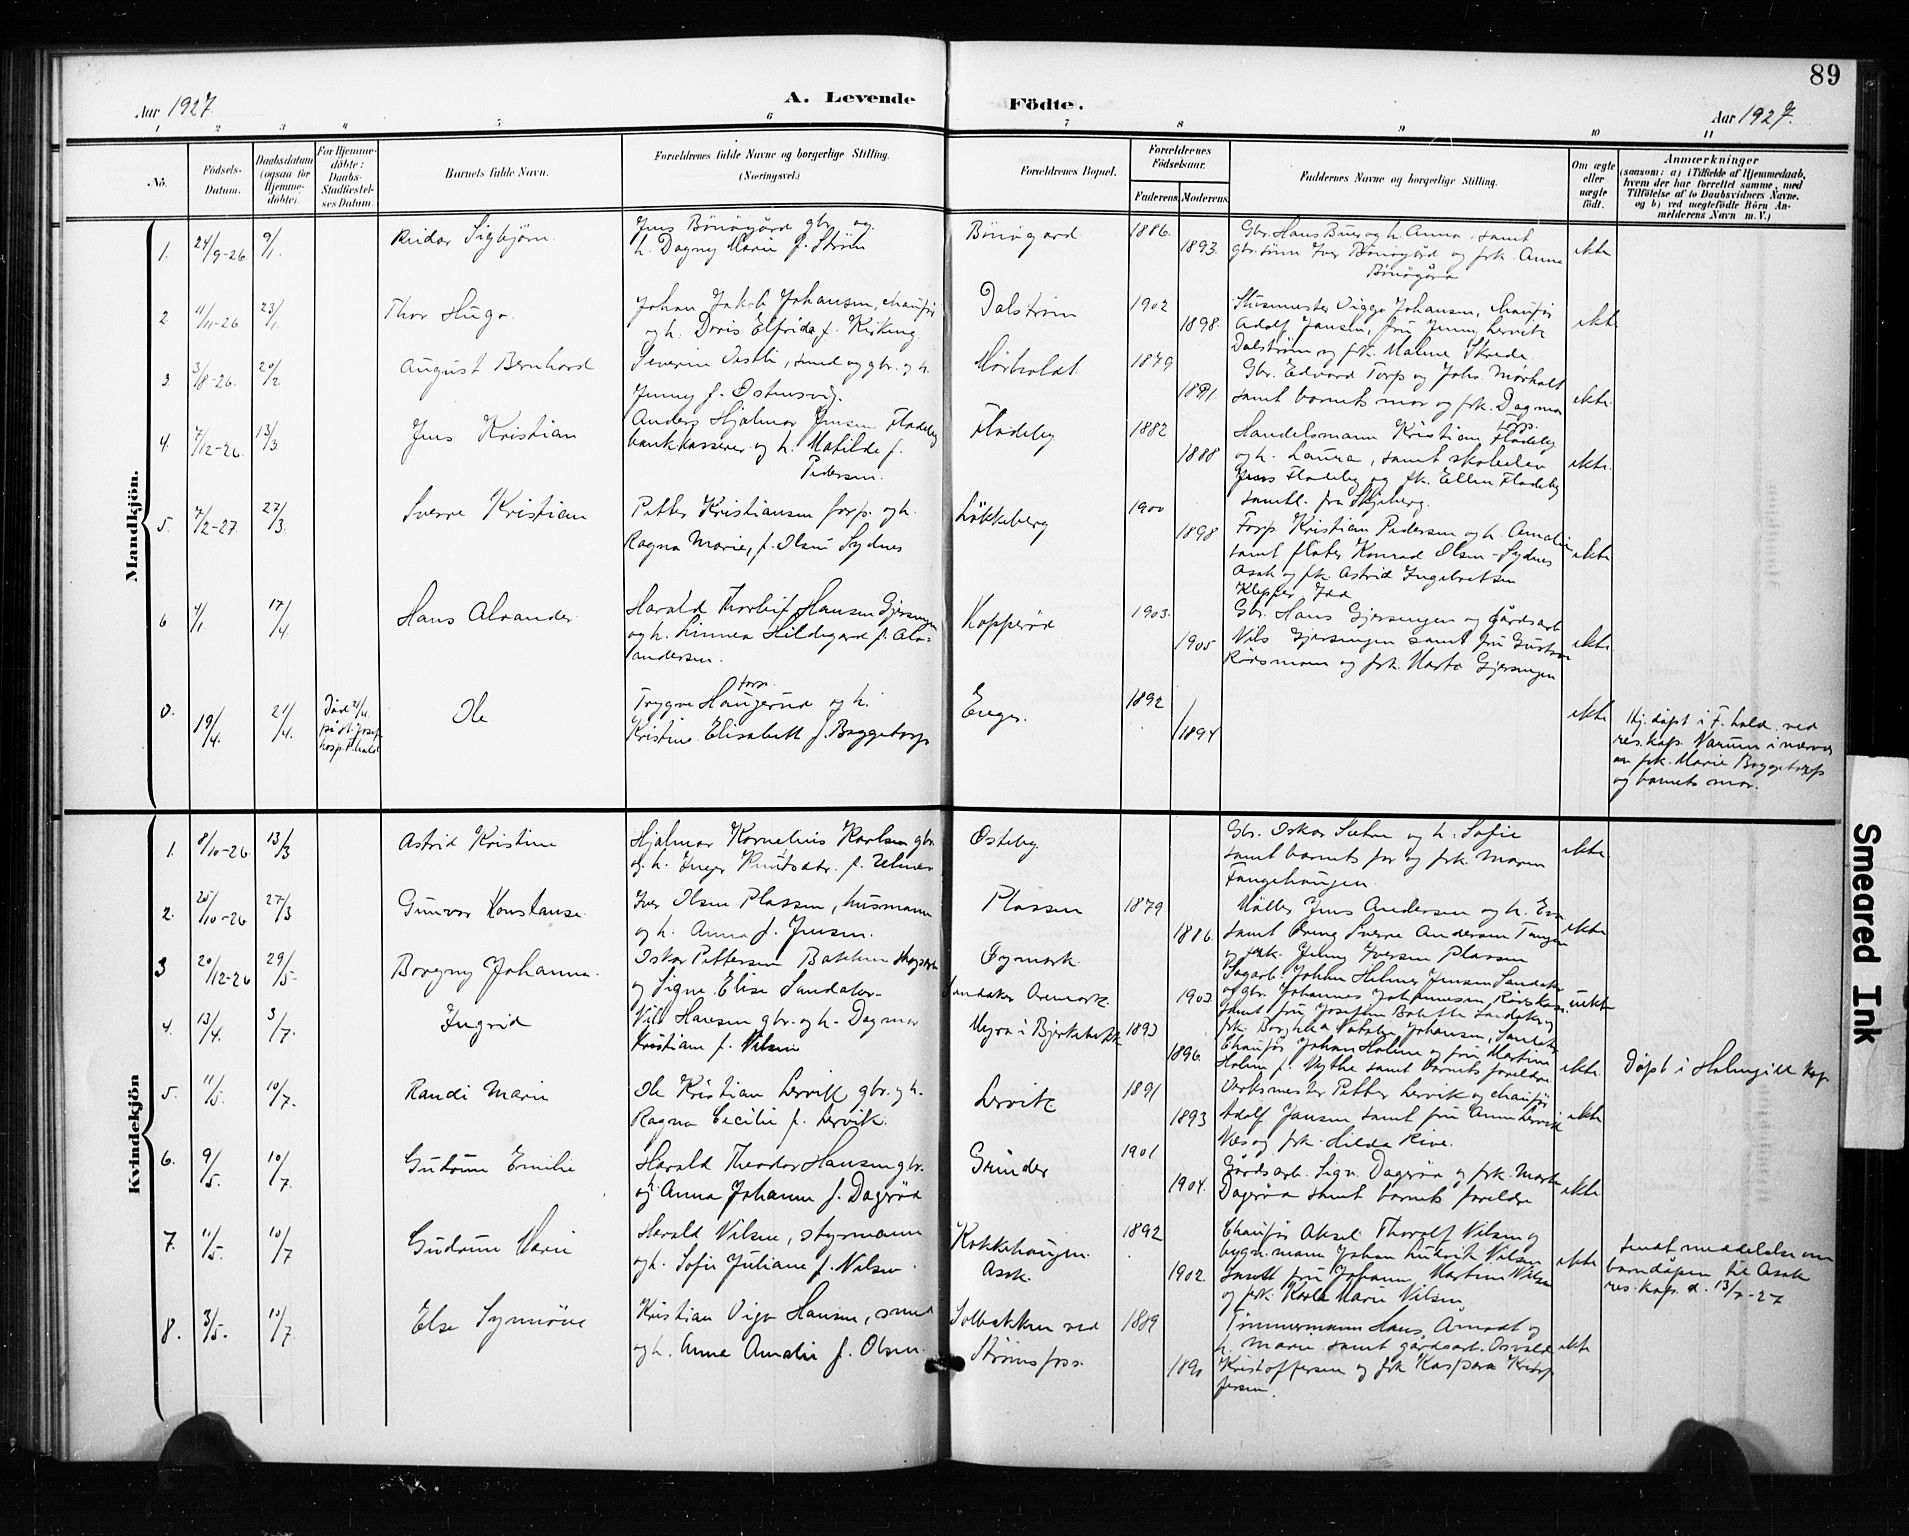 89
Aar 1927.
A. Levende Födte.
Aar 1927.
1 2 3 4 5 6 7 8 9 10 11
No.
Födsels-Datum.
Daabsdatum (ogsaa for Hjemme-döbte).
For Hjemme-döbte: Daabs-Stadfæstel-ses Datum.
Barnets fulde Navn.
Forældrenes fulde Navne og borgerlige Stilling. (Næringsvei.)
Forældrenes Bopæl.
Forældrenes Födselsaar.
Faderens. Moderens.
Faddernes Navne og borgerlige Stilling.
Om ægte eller uægte födt.
Anmærkninger
(saasom: a) i Tilfælde af Hjemmedaab, hvem der har forrettet samme, med Tilföielse af to Daabsvidners Navne. og b) ved uægtefödte Börn Anmelderens Navn m. V.)
Mandkjön.
1. 24/9-26 9/1. Reidar Sigbjørn.
Jens Bönögård gbr. og
h. Dagny Marie f. Strøm
Bönögard 1886. 1893.
Gbr. Hans Buer og h. Anna, samt
gbr. sönn Iver Bönögård og frk. Anna
Bönögård
ekte
2 11/11-26 23/1. Thor Hugo.
Johan Jakob Johansen, chauför
og h. Doris Elfrida f.
Dalström 1902 1898.
Viggo Johansen, chauför
Adolf Jansen, fru Lervik
Dalström og frk. Skrede
ekte
3 3/8-26. 20/2 August Bernhard
Severin Vestli, smed og gbr. og h.
Jenny f. Østensvig.
Mørholdt. 1879 1891.
Gbr. Edvard Torp og Johs. Mørholt
samt barnets mor og frk. Dagmar
Torp.
ekte.
4 7/12-26. 13/3. Jens Kristian
Anders Hjalmar Jensen Fladeby
bankkasserer og h. Matilde f.
Pedersen.
Fladeby 1882 1888
Handelsmann Kristian Fladeby
og h. Laura, samt skoleelev
Jens Fladeby og frk. Ellen Fladeby
samtl. fra Skjeberg.
ekte.
5. 7/2-27 27/3. Sverre Kristian
Petter Kristiansen forp. og h.
Ragna Marie, f. Olsen Sydnes
Løkkeberg 1900 1898
Forp. Kristian Pedersen og h. Amalie
samt fløter Konrad Olsen-Sydnes
Asak og frk. Astrid Ingebretsen
Klepper, Idd
ekte
6 4/1. 17/4 Hans Alvander.
Harald Thorleif Hansen Gjersengen
og h. Linnea Hildegard f. Alv-
andersen.
Kopperød 1903. 1905
Gbr. Hans Gjersengen og gårdsarb.
Nils Gjersengen samt fru Gustava
Rødsmoen og frk. Marta Gjersengen
ekte
0. 19/4. 21/4. Død 21/4. på St. Josef hosp. F.hald
Ole
forp.
Trygve Haugerud og h.
Kristine Elisabeth f. Boggetorp
Enger. 1892 1894
ekte
Hj.døpt i F.hald ved
res.kap. Narum i nærver
av frk. Marie Boggetorp
og barnets mor.
Kvindekjön
1. 8/10-26 13/3 Astrid Kristine
Hjalmar Kornelius Karlsen gbr.
og h. Inger Knutsdtr. f.
Østeby.
Gbr. Oskar Sæhre og h. Sofie
samt barnets far og frk. Maren
Tangehaugen.
ekte
2. 25/10-26 27/3 Gunvor Konstanse
Iver Olsen Plassen, husmann
og h. Anna f. Jensen.
Plassen 1879 1886.
Møller Jens Andersen og h. Eva
samt dreng Sverre Andersen Tangen
og frk. Jenny Iversen Plassen
ekte
3 20/12-26 29/5- Borgny Johanne.
Oskar Pettersen Bakken
og Signe Elise Sandaker-
Fymark.
Sandaker Aremark. 1903
Sagarb. Johan Helmer Jensen Sandaker
og gbr. Johannes Johannesen
samt fru Josefine Bolette Sandaker og
frk. Borghild Johansen, Sandaker
uekte
4. 13/4. 3/7. Ingrid
Nils Hansen gbr. og h. Dagmar
Kristiane f. Nilsen
Myra i Bjerkebekk 1893 1896.
Chauför Johan Holme og fru Martine
Holme f. Nythe samt barnets foreldre
ekte.
Døpt i Holmgill kap.
5. 11/5. 10/7. Randi Marie
Ole Kristian Lervik gbr. og h.
Ragna Cecilie f. Lervik.
Lervik 1891 1893
Verksmester Petter Lervik og chauför
Adolf Jansen samt fru Anna Lervik
Næs og frk. Hilda Rive.
ekte
6. 9/5. 10/7. Gudrun Emilie
Harald Theodor Hansen gbr.
og Anna Johanne f. Dagrød
Grinder 1901 1904.
Gårdsarb. Sigv. Dagrød og frk. Marta
Dagrød samt barnets foreldre
ekte
7. 11/5. 10/7 Gudrun Marie
Harald Nilsen, styrmann
og h. Sofie Juliane f. Nilsen.
Kokkehaugen
Asak. 1892 1902
Chauför Aksel Thorolf Nilsen og
bygn.mann Johan Ludvik Nilsen
samt fru Johanne Martine Nilsen
og frk. Karla Marie Nilsen
ekte
Sendt meddelelse om
barndåpen til Asak
res.kap. d. 13/7-27
8. 3/5. 10/7. Else Synnöve
Kristian Vigo Hansen, smed
og h. Anna Amalie f. Olsen.
Solbakken ved
Strømsfoss. 1889 1890
Tömmermann Hans Aarnodt og
h. Marie samt gårdsarb. Osvald
Kristoffersen og frk. Kaspara Kristof-
fersen.
ekte
Smeared Ink